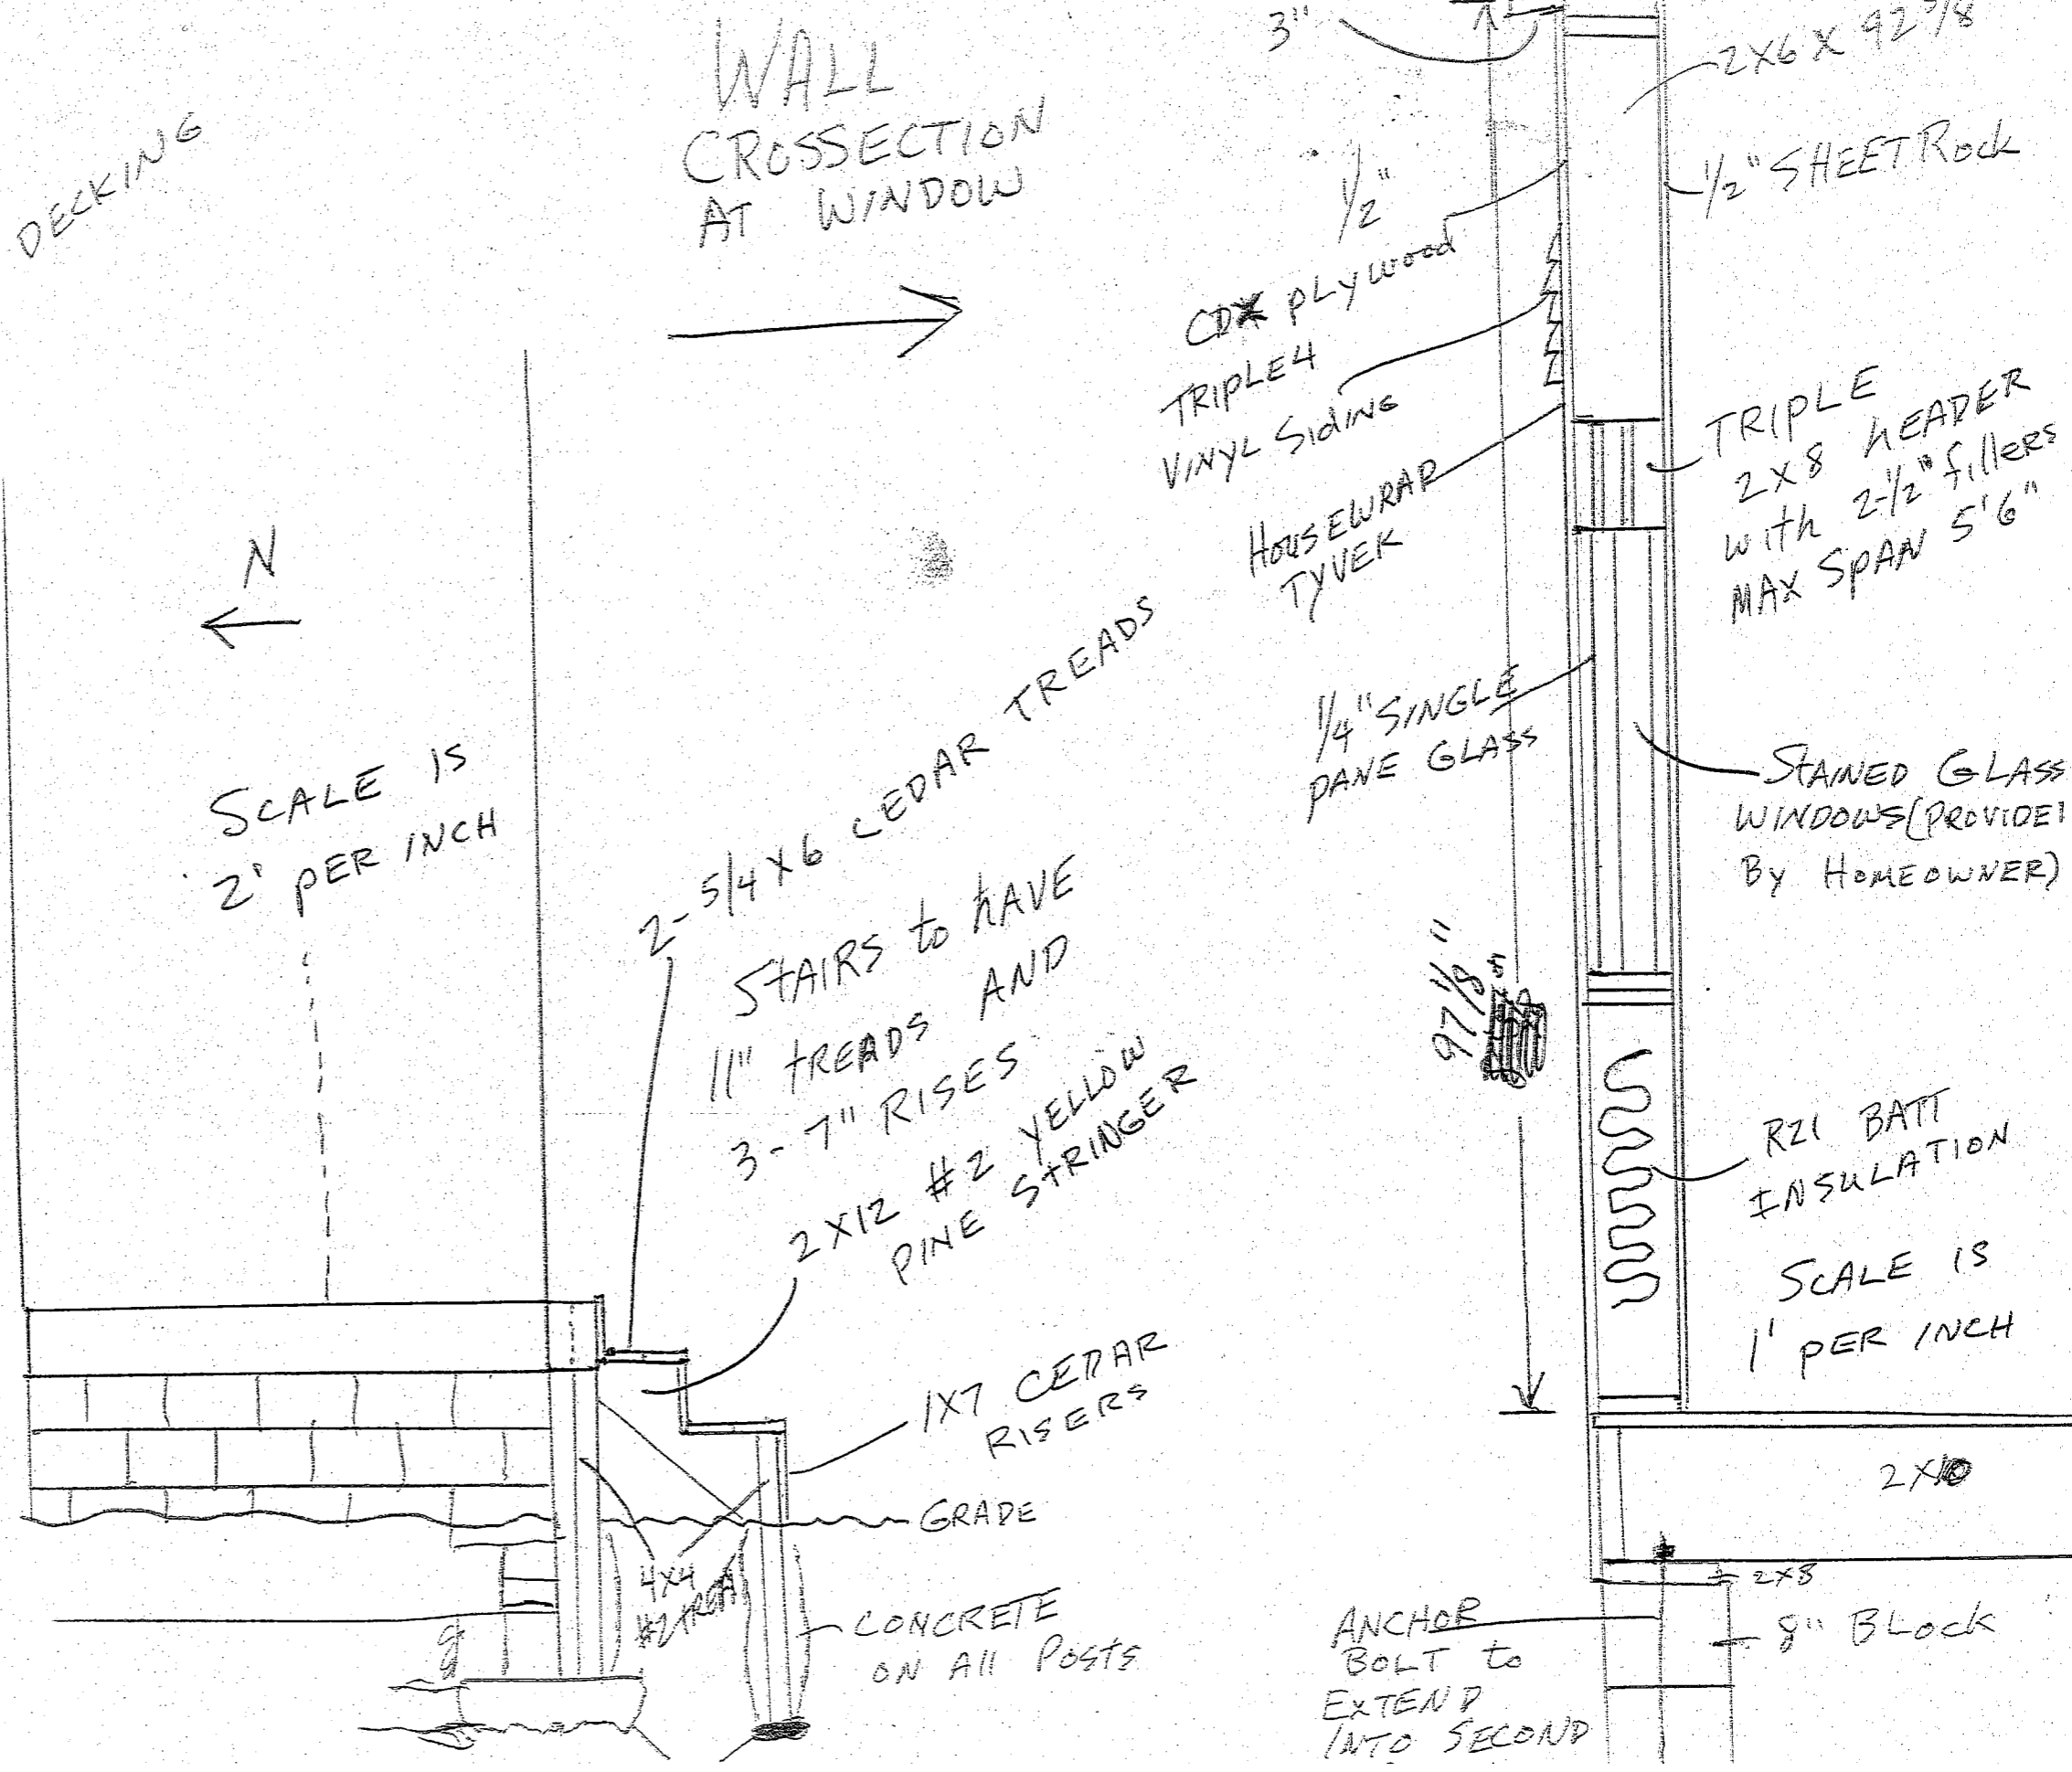 DECKING
WALL
CROSSECTION
AT WINDOW
N
SCALE IS
2' PER INCH
2- 5/4 X 6 CEDAR TREADS
STAIRS to hAVE
11" tREADS AND
3- 7" RISES
2X12 #2 YELLOW
PINE StRINGER
1X7 CEDAR
RISERS
GRADE
4X4
#2 TREAT
CONCRETE
ON All Posts
8"
3"
2X6 X 92 5/8
1/2" SHEETRock
1/2"
CDX pLywood
TRIPLE 4
VINYL SidING
HOUSEWRAP
TYVEK
TRIPLE
2X8 hEADER
with 2-1/2" fillers
MAX SPAN 5'6"
1/4" SINGLE
PANE GLASS
STAINED GLASS
WINDOWS (PROVIDE
By HOMEOWNER)
97 1/8"
R21 BATT
INSULATION
SCALE IS
1' PER INCH
2X10
2X8
8" BLock
ANCHOR
BOLT to
EXTEND
INTO SECOND